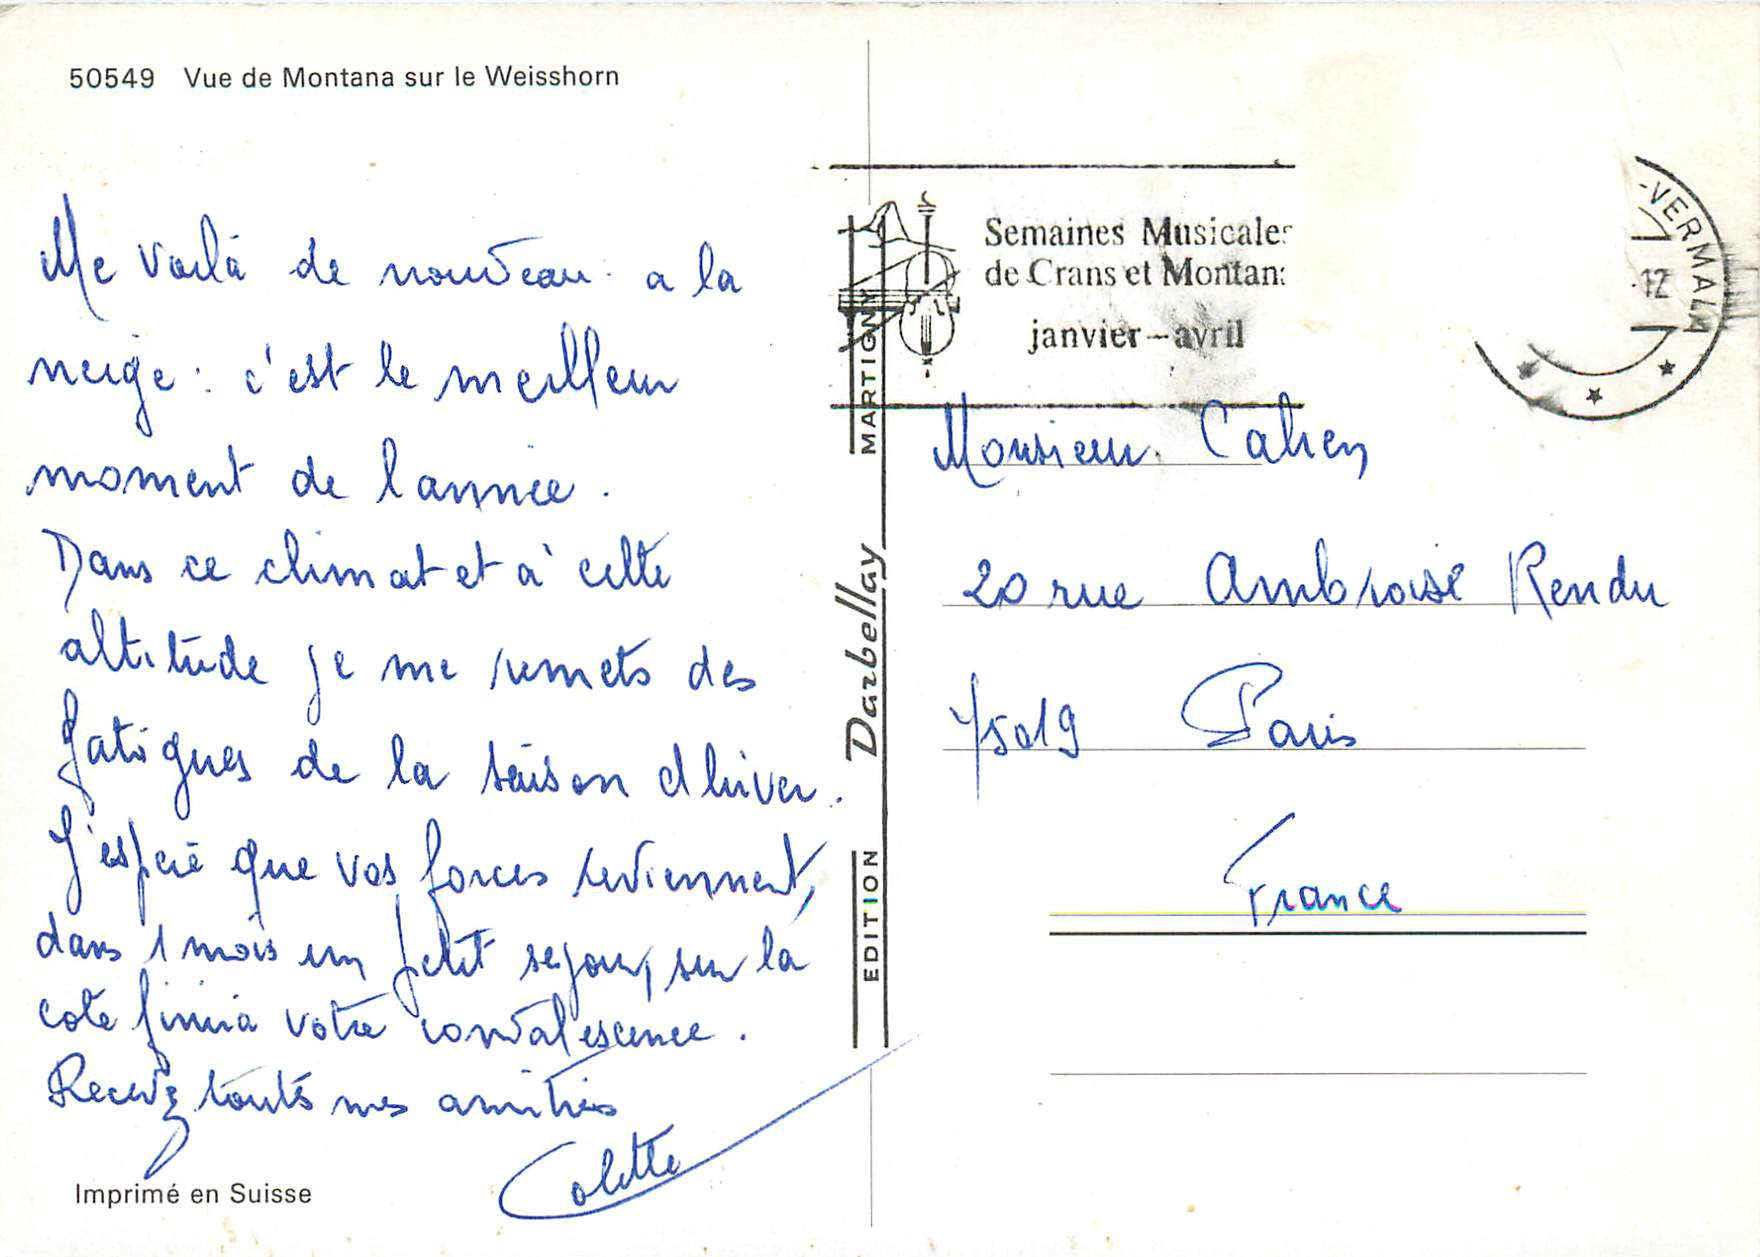 50549 Vue de Montana sur le Weisshorn
Me voilà de nouveau a la
neige : c'est le meilleur
moment de l'année.
Dans ce climat et à cette
altitude je me remets des
fatigues de la saison d'hiver.
J'espère que vos forces reviennent,
dans 1 mois un petit sejour, sur la
cote finira votre convalescence.
Recevez toutes mes amitiés
Colette
Imprimé en Suisse
EDITION Darbellay MARTIGNY
Semaines Musicales
de Crans et Montan
janvier – avril
-VERMALA
12
Monsieur Cahen
20 rue Ambroise Rendu
75019 Paris
France